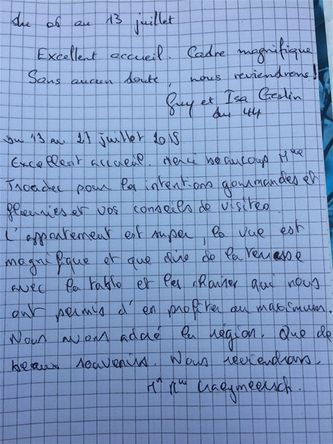 du 06 au 13 juillet
Excellent accueil. Cadre magnifique
Sans aucun doute, nous reviendrons !
Guy et Isa
du 44
Du 13 au 27 juillet 2015
Excellent accueil. Merci beaucoup Mme
pour les intentions gourmandes et
fleuries et vos conseils de visites.
L'appartement est super, la vue est
magnifique et que dire de la terrasse
avec la table et les chaises qui nous
ont permis d'en profiter au maximum.
Nous avons adoré la région. Que de
beaux souvenirs. Nous reviendrons.
Mr Mme